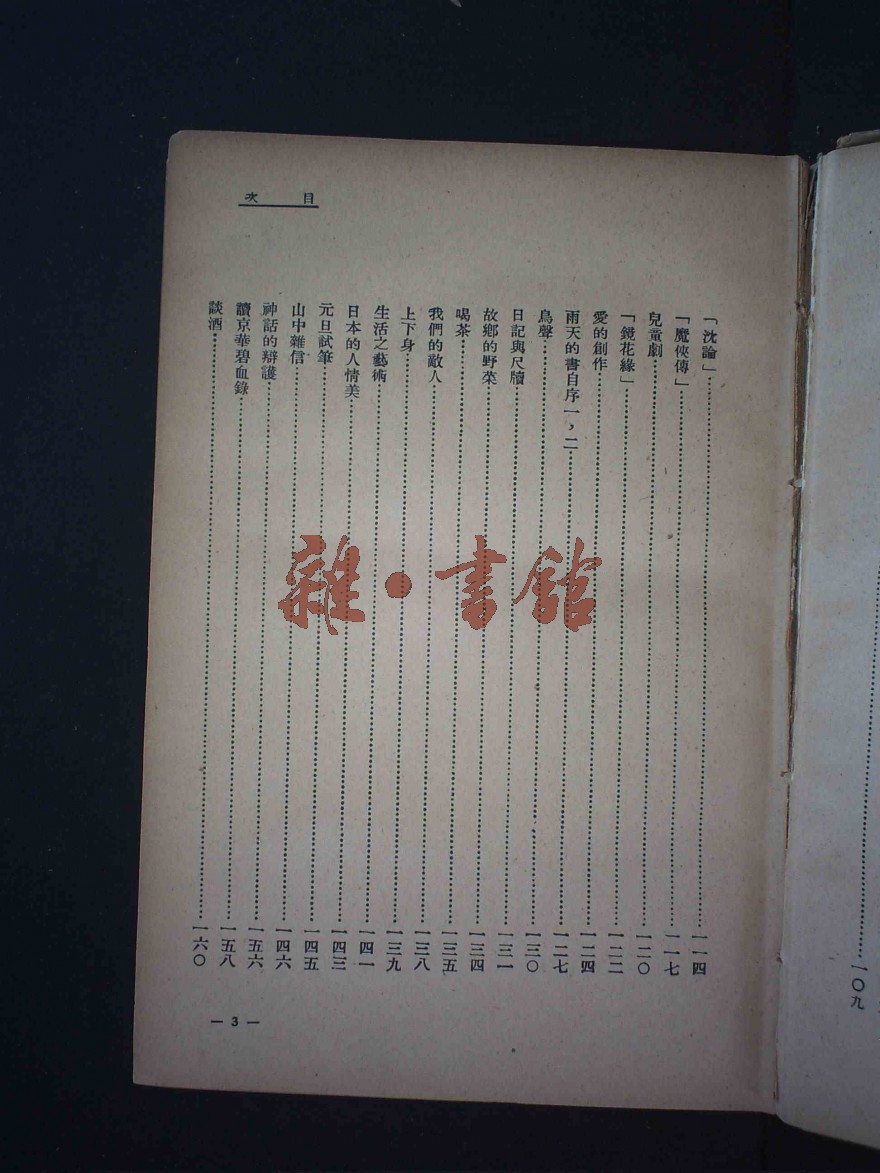 目次
「沈論」一一四
「魔俠傳」一一七
兒童劇一二〇
「鏡花緣」一二二
愛的創作一二四
雨天的書自序一，二一二七
鳥聲一三〇
日記與尺牘一三一
故鄉的野菜一三四
喝茶一三五
我們的敵人一三八
上下身一三九
生活之藝術一四一
日本的人情美一四三
元旦試筆一四五
山中雜信一四六
神話的辯護一五六
讀京華碧血錄一五八
談酒一六〇
— 3 —
一〇九
雜·書館